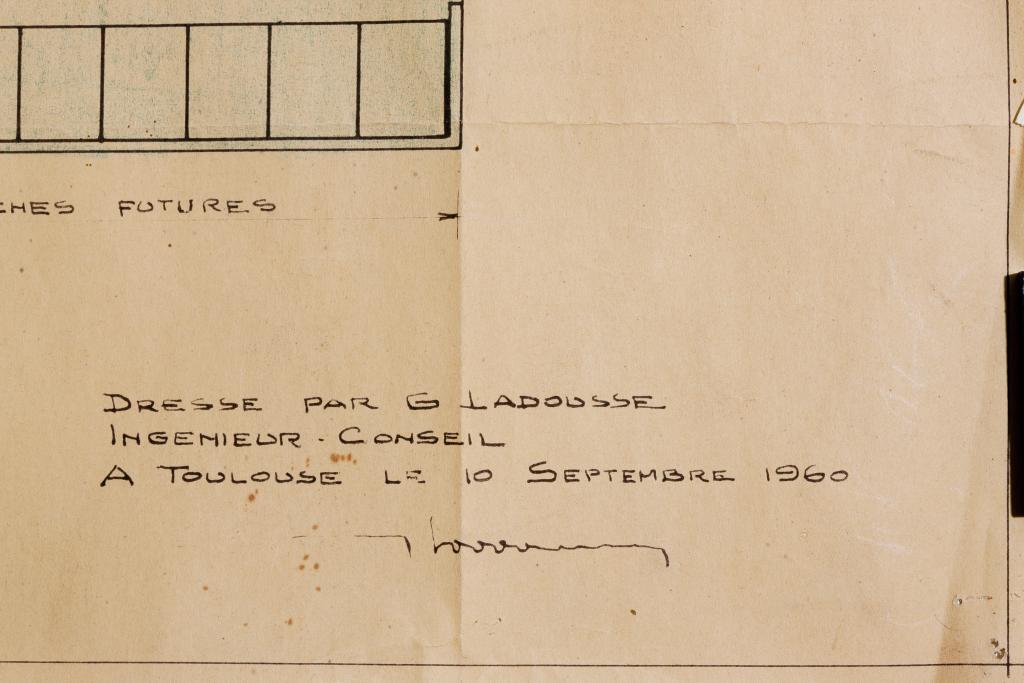 CHES FUTURES
DRESSE PAR G LADOUSSE
INGENIEUR - CONSEIL
A TOULOUSE LE 10 SEPTEMBRE 1960